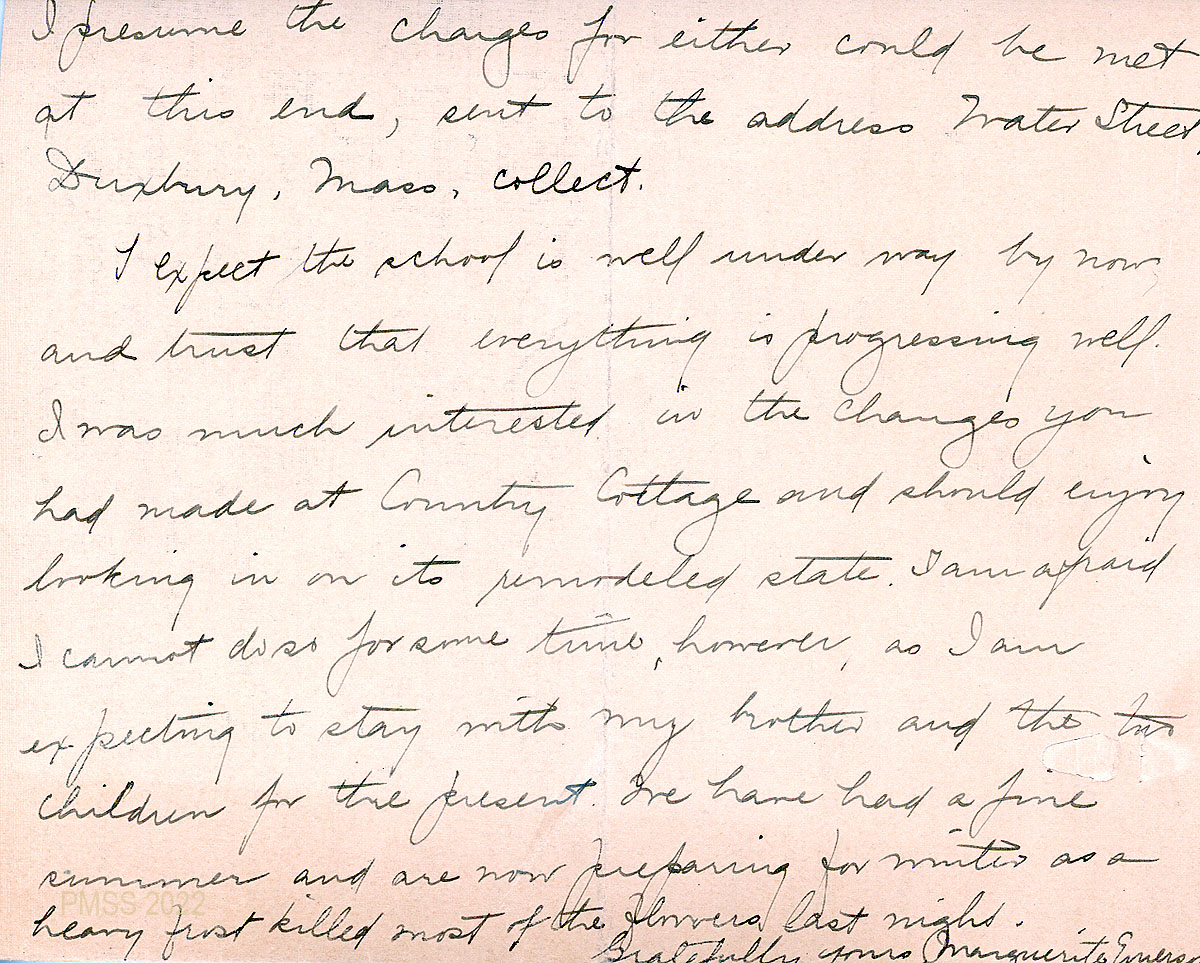 I presume the charges for either could be met
at this end, sent to the address Water Street,
Duxbury, Mass, collect.
I expect the school is well under way by now,
and trust that everything is progressing well.
I was much interested in the changes you
had made at Country Cottage and should enjoy
looking in on its remodeled state. I am afraid
I cannot do so for some time, however, as I am
expecting to stay with my brother and the two
children for the present. We have had a fine
summer and are now preparing for winter as a
PMSS 2022
heavy frost killed most of the flowers last night.
Gratefully yours, Marguerite Emerso